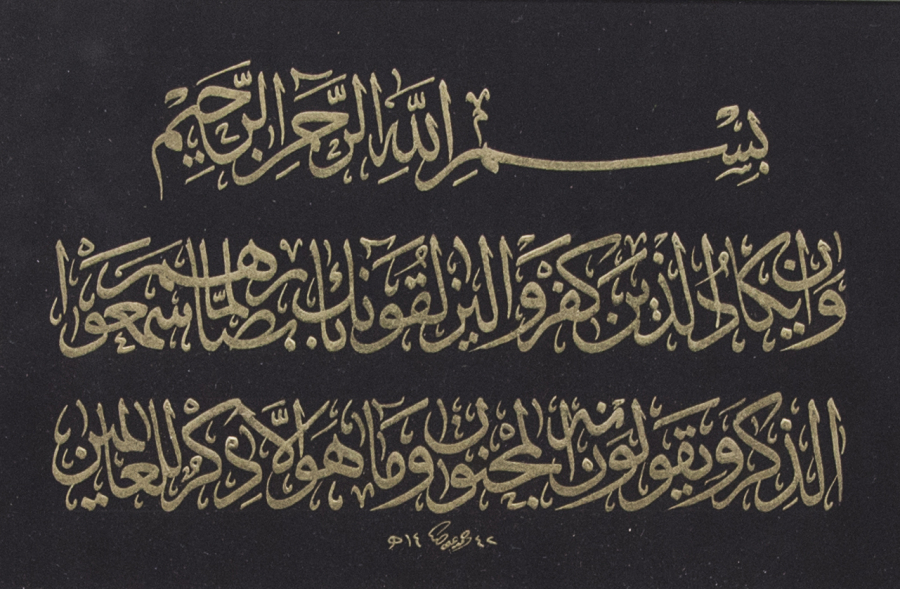 بِسْمِ اللهِ الرَّحْمٰنِ الرَّحِيْمِ
وَإِن يَكَادُ الَّذِينَ كَفَرُوا لَيُزْلِقُونَكَ بِأَبْصَارِهِمْ لَمَّا سَمِعُوا
الذِّكْرَ وَيَقُولُونَ إِنَّهُ لَمَجْنُونٌ وَمَا هُوَ إِلَّا ذِكْرٌ لِلْعَالَمِينَ